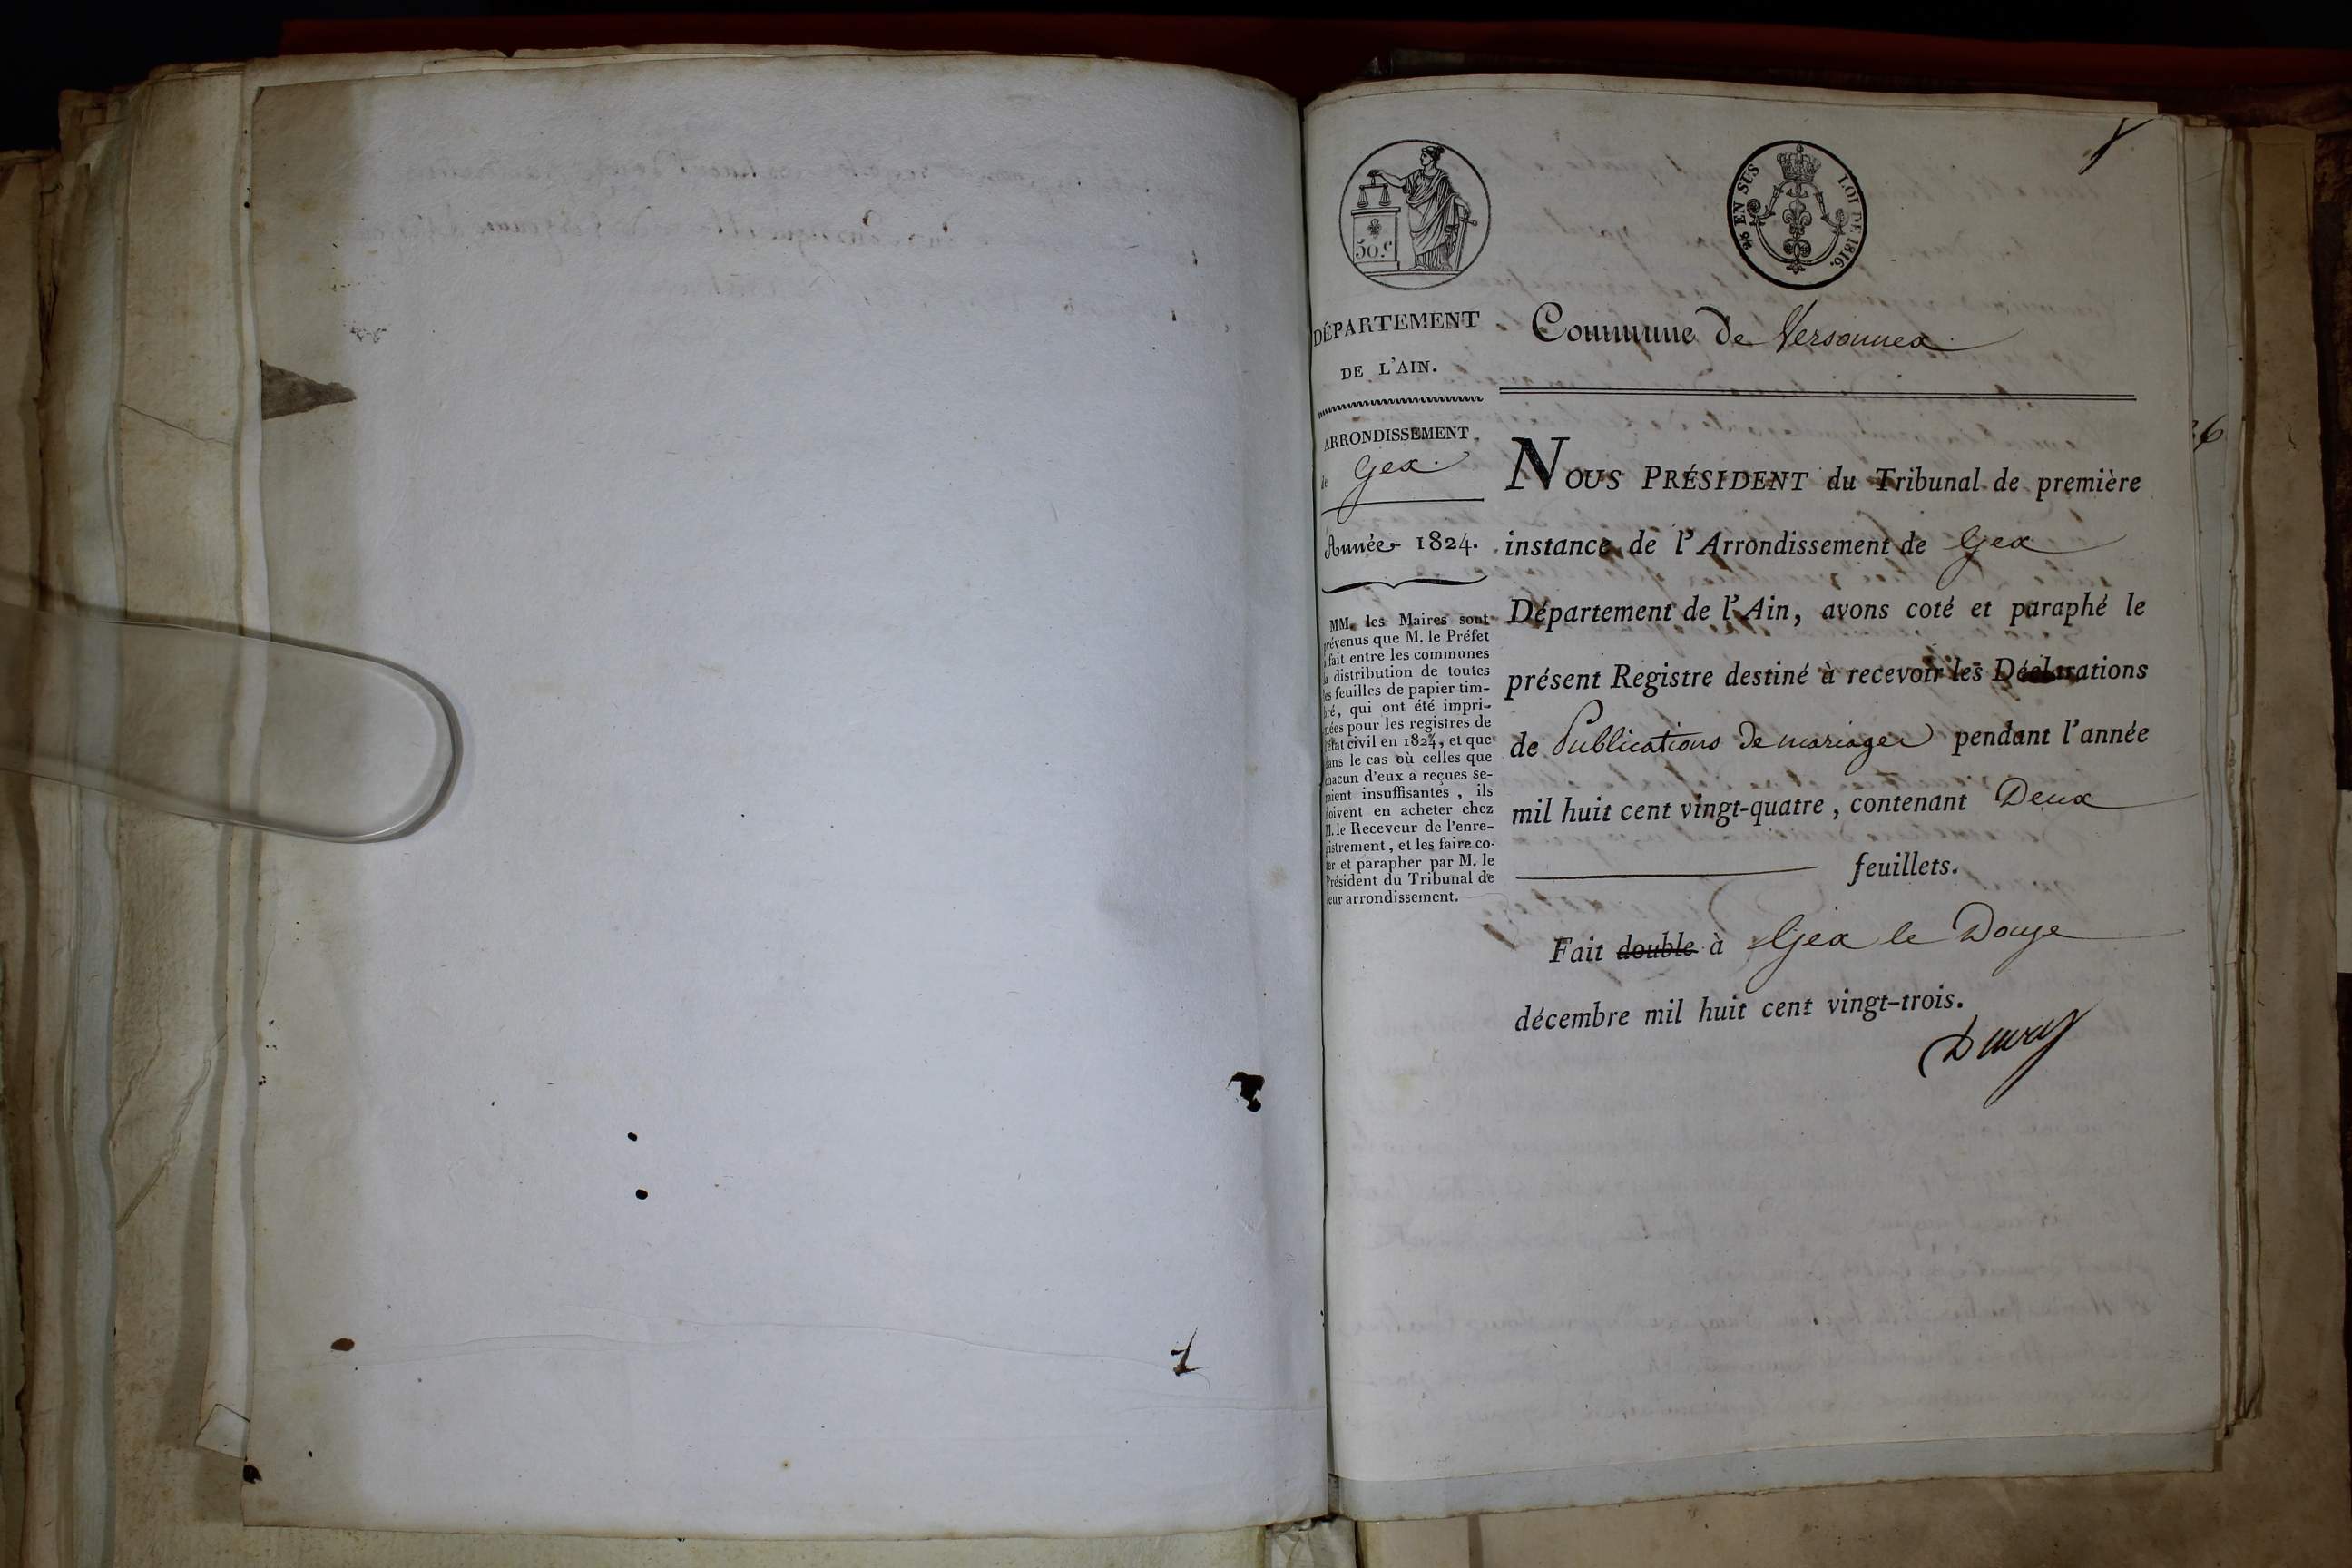 50.c
EN SUS LOI DE 1816.
DÉPARTEMENT
DE L'AIN.
ARRONDISSEMENT
de Gex
Année 1824.
MM. les Maires sont
prévenus que M. le Préfet
a fait entre les communes
la distribution de toutes
les feuilles de papier tim-
bré, qui ont été impri-
mées pour les registres de
l'état civil en 1824, et que
dans le cas où celles que
chacun d'eux a reçues se-
raient insuffisantes, ils
doivent en acheter chez
M. le Receveur de l'enre-
gistrement, et les faire co-
ter et parapher par M. le
Président du Tribunal de
leur arrondissement.
Commune de Versonnex
NOUS PRÉSIDENT du Tribunal de première
instance de l'Arrondissement de Gex
Département de l'Ain, avons coté et paraphé le
présent Registre destiné à recevoir les Déclarations
de Publications de mariages pendant l'année
mil huit cent vingt-quatre, contenant Deux
feuillets.
Fait double à Gex le Douze
décembre mil huit cent vingt-trois.